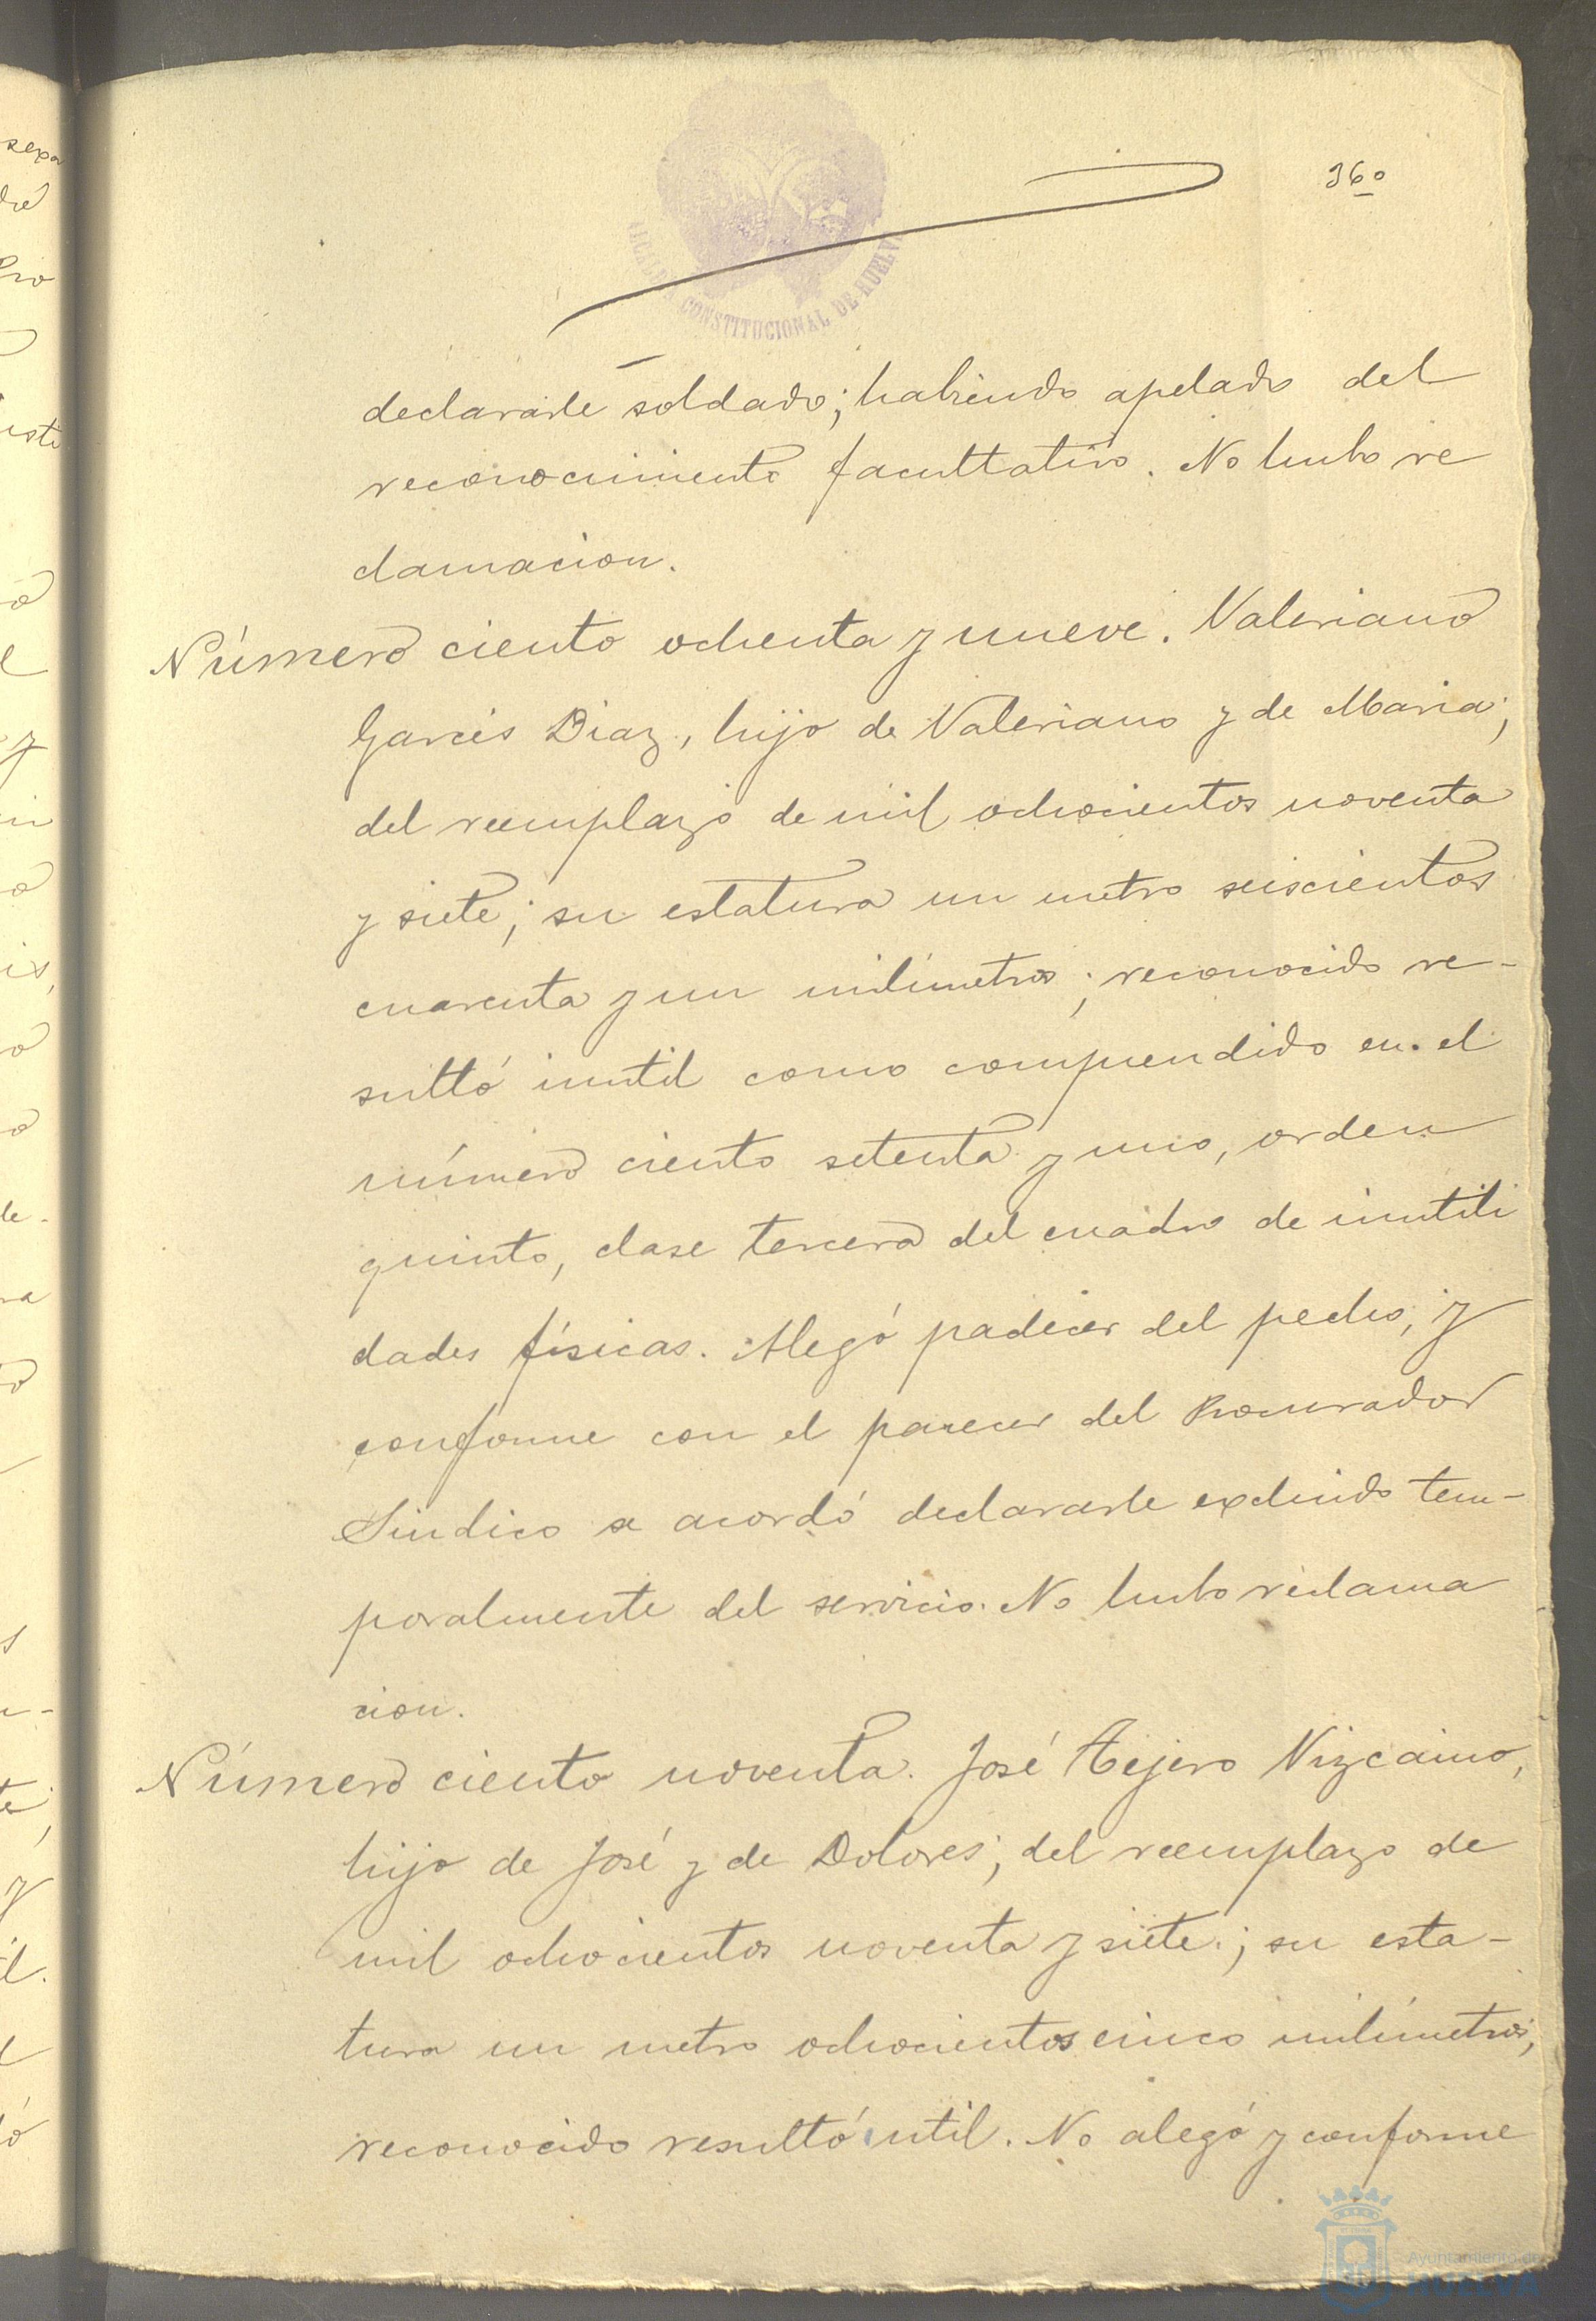 36º
ALCALDIA CONSTITUCIONAL DE HUELVA
declararle soldado; habiendo apelado del
reconocimiento facultativo. No hubo re
clamacion.
Número ciento ochenta y nueve. Valeriano
Garcés Diaz, hijo de Valeriano y de Maria;
del reemplazo de mil ochocientos noventa
y siete; su estatura un metro seiscientos
cuarenta y un milímetros; reconocido re-
sultó inutil como comprendido en el
número ciento setenta y uno, orden
quinto, clase tercera del cuadro de inutili
dades físicas. Alegó padecer del pecho; y
conforme con el parecer del Procurador
Sindico se acordó declararle excluido tem-
poralmente del servicio. No hubo reclama
cion.
Número ciento noventa. José Tejero Vizcaino,
hijo de José y de Dolores; del reemplazo de
mil ochocientos noventa y siete; su esta-
tura un metro ochocientos cinco milímetros;
reconocido resultó util. No alegó y conforme
Ayuntamiento de
HUELVA